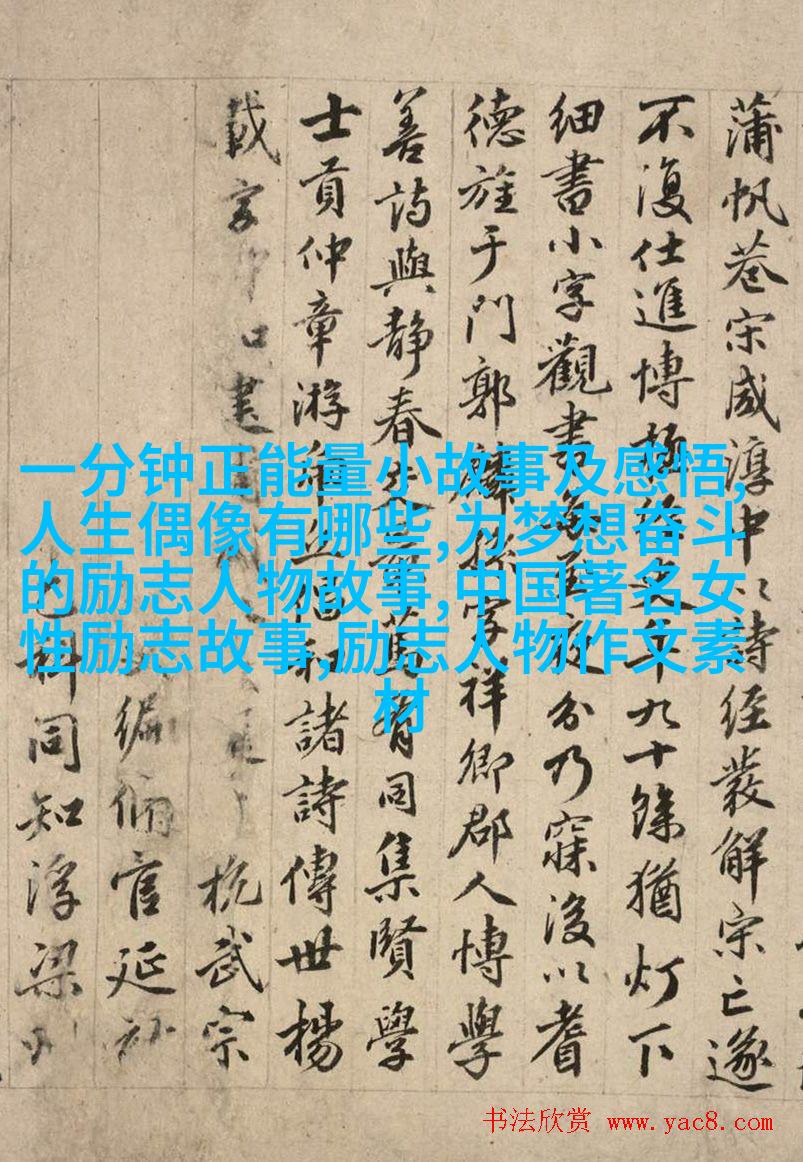 蒲帆巷宋咸淳中以詩經發解宋亡遂
不復仕進博極史年九十餘猶灯下
細書小字觀書每至夜分乃寐後以耆
德旌于門郭麟孫字祥卿郡人博學
善詩與靜春先篤有同集賢學
士貢仲章游和諸詩傳世楊
載字建杭武宗
編脩官延祐
同知浮梁州
一分钟正能量小故事及感悟,
人生偶像有哪些,为梦想奋斗
的励志人物故事,中国著名女
性励志故事,励志人物作文素
材
书法欣赏 www.yac8.com